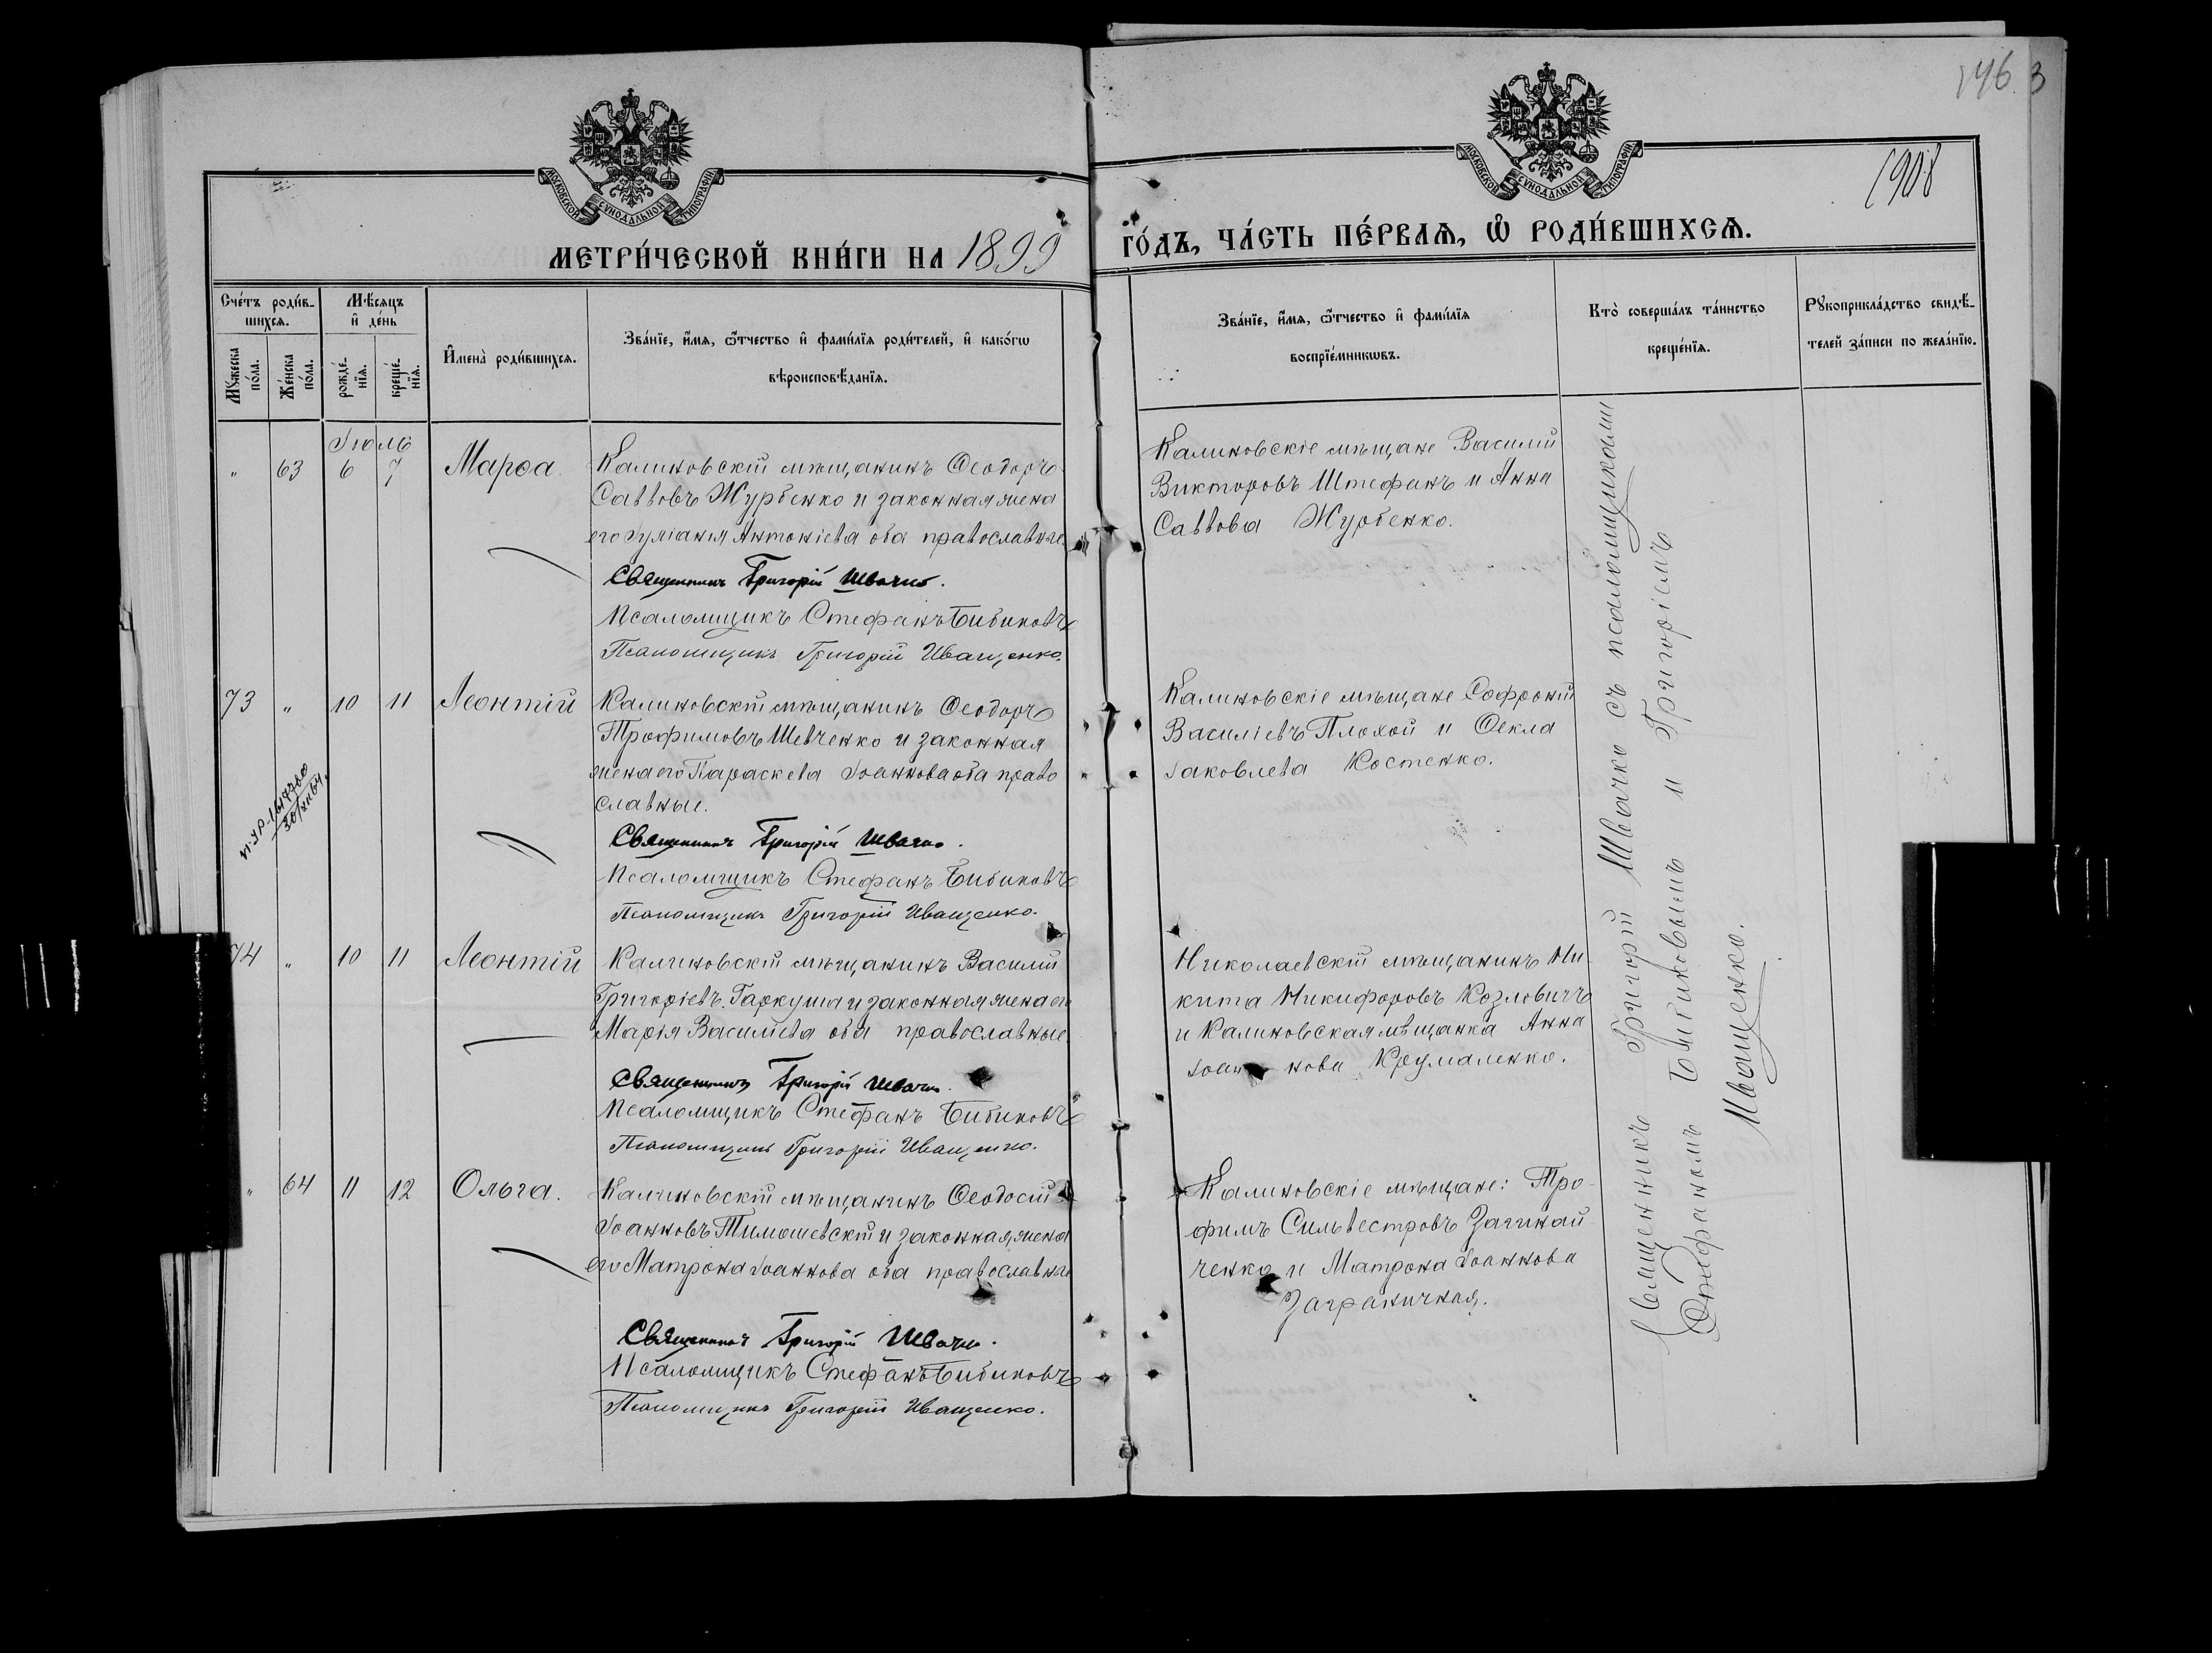 146 3
1908
МОСКОВСКОЙ СѴНОДАЛЬНОЙ ТИПОГРАФІИ
МОСКОВСКОЙ СѴНОДАЛЬНОЙ ТИПОГРАФІИ
МЕТРИ́ЧЕСКОЙ КНИ́ГИ НА 1899 ГО́ДЪ, ЧА́СТЬ ПЕ́РВАѦ, Ѡ РОДИ́ВШИХСѦ.
Сче́тъ роди́в-
шихся.
Му́жеска
по́ла.
Же́нска
по́ла.
Мѣ́сяцъ
и̂ де́нь
рожде́-
нїя.
креще́-
нїя.
И̂мена̀ роди́вшихся.
Зва́нїе, и́мя, ѻ́тчество и̂ фами́лїя роди́телей, и̂ како́гѡ
вѣроисповѣ́данїя.
Зва́нїе, и́мя, ѻ́тчество и̂ фами́лїя
воспрїе́мникѡвъ.
Кто̀ соверша́лъ та́инство
креще́нїя.
Рꙋкоприкла́дство свидѣ́-
телей за́писи по жела́нїю.
Іюль
" 63 6 7 Марѳа.
Калиновскій мѣщанинъ Ѳеодоръ
Саввовъ Журбенко и законная жена
его Іуліанія Антоніева оба православные.
Священникъ Григорій Швачко.
Псаломщикъ Стефанъ Бибиковъ
Псаломщикъ Григорій Иващенко.
Калиновскіе мѣщане Василій
Викторовъ Штефанъ и Анна
Саввова Журбенко.
73 " 10 11 Леонтій
Калиновскій мѣщанинъ Ѳеодоръ
Трофимовъ Шевченко и законная
жена его Параскева Іоаннова оба право
славные.
Священникъ Григорій Швачко.
Псаломщикъ Стефанъ Бибиковъ
Псаломщикъ Григорій Иващенко.
Калиновскіе мѣщане Софроній
Василіевъ Плохой и Ѳекла
Іаковлева Костенко.
74 " 10 11 Леонтій
Калиновскій мѣщанинъ Василій
Григоріевъ Гаркуша и законная жена его
Марія Василіева оба православные.
Священникъ Григорій Швачко.
Псаломщикъ Стефанъ Бибиковъ
Псаломщикъ Григорій Иващенко.
Николаевскій мѣщанинъ Ни
кита Никифоровъ Козловичъ
и Калиновская мѣщанка Анна
Іоаннова Крумаленко.
" 64 11 12 Ольга.
Калиновскій мѣщанинъ Ѳеодосій
Іоанновъ Тимошевскій и законная жена
его Матрона Іоаннова оба православные
Священникъ Григорій Швачко.
Псаломщикъ Стефанъ Бибиковъ
Псаломщикъ Григорій Иващенко.
Калиновскіе мѣщане: Тро-
фимъ Сильвестровъ Загинай
ченко и Матрона Іоаннова
Заграничная.
Священникъ Григорій Швачко съ псаломщиками
Стефаномъ Бибиковымъ и Григоріемъ
Иващенко.